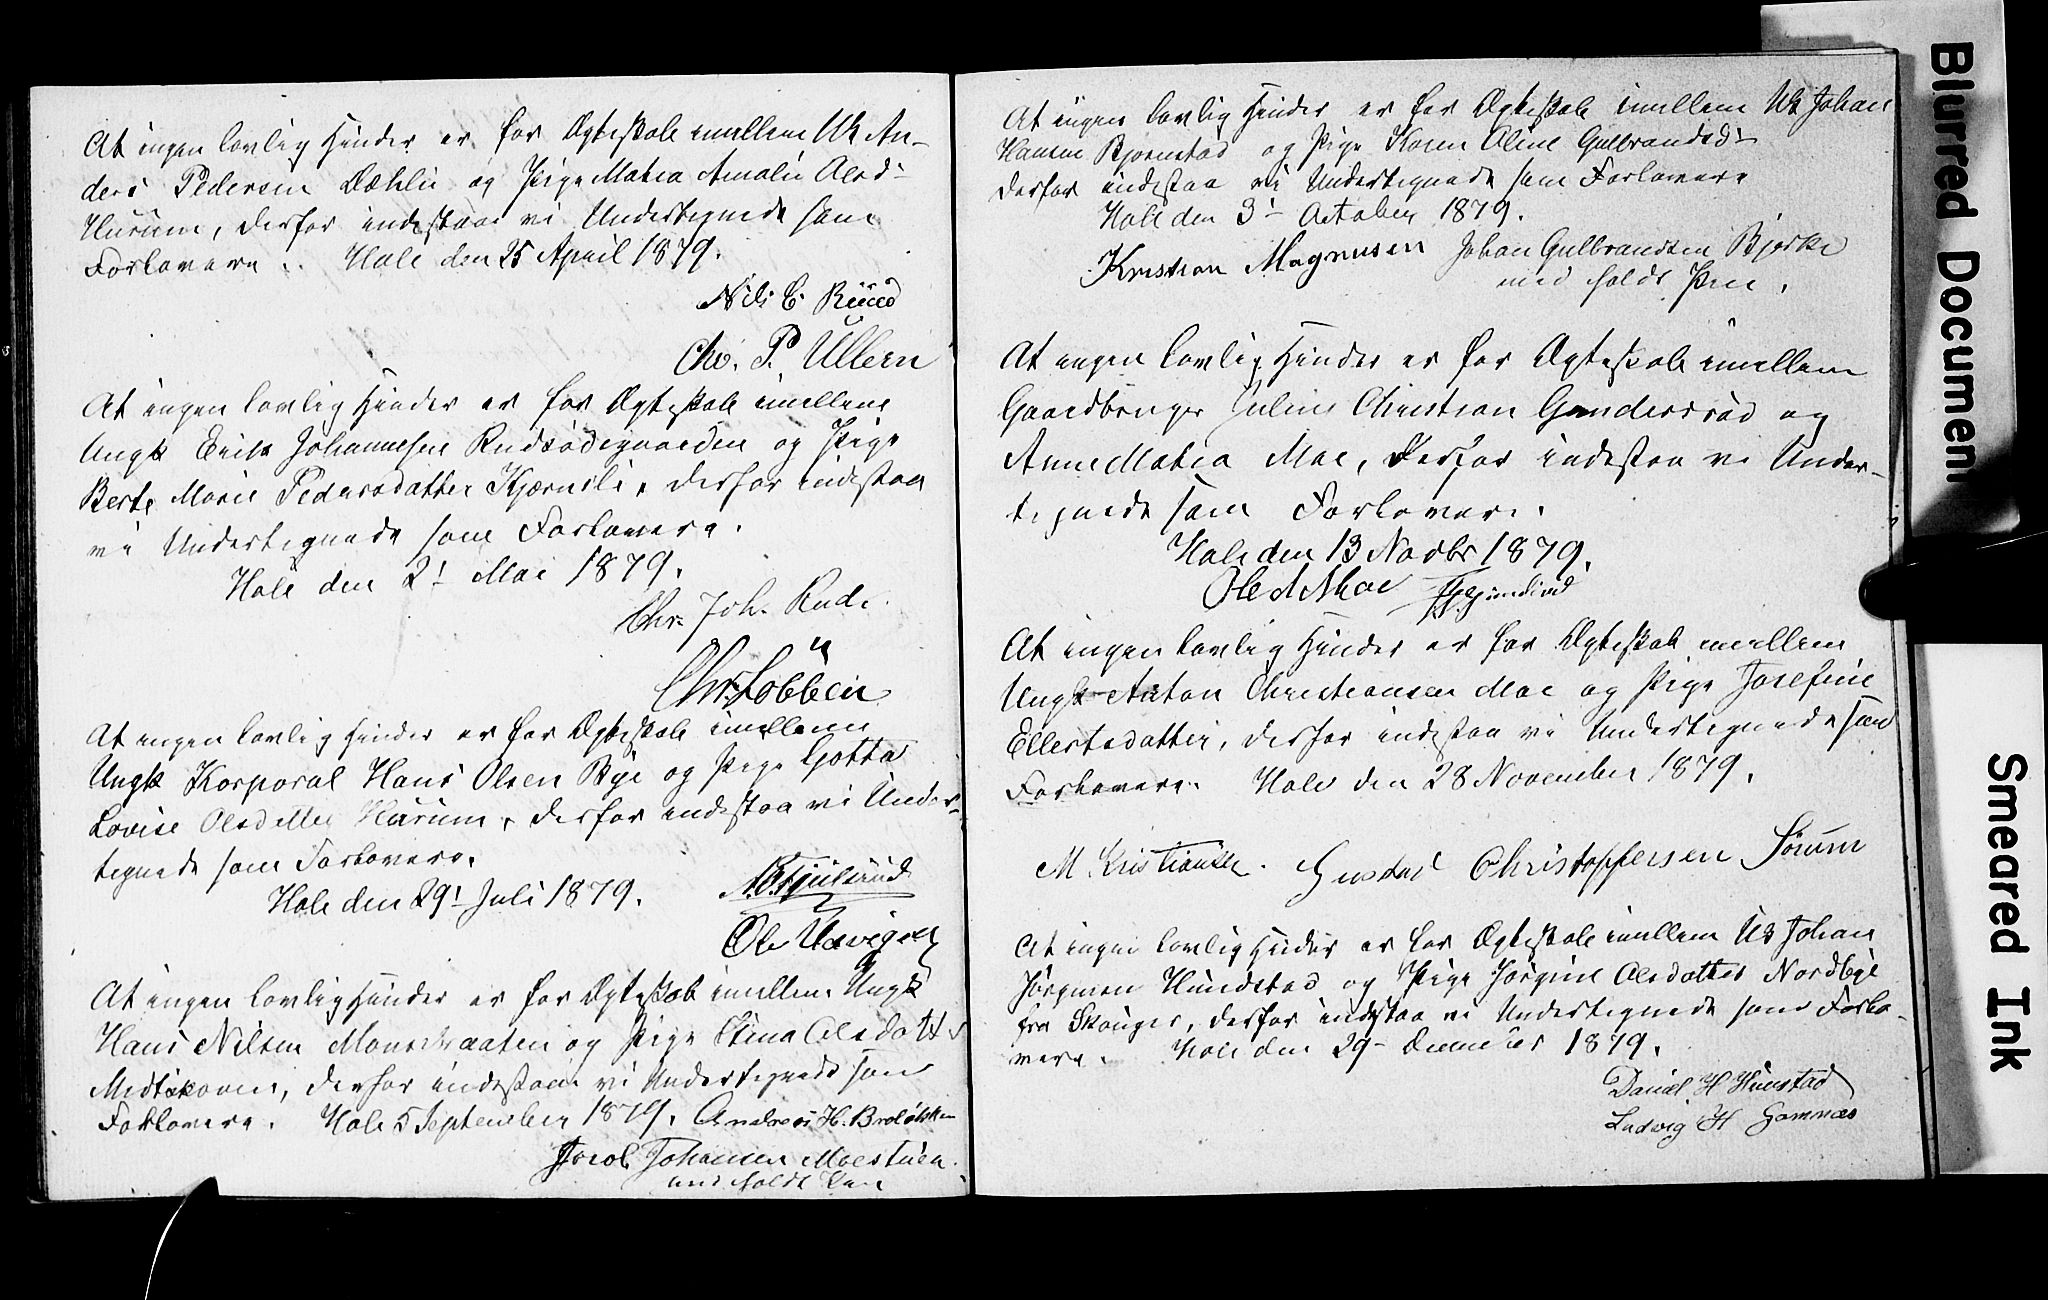 At ingen lovlig Hinder er for Ægteskab imellem Uk An-
ders Pedersen Dæhlie og Pige Matea Amalie Olsd-
Hurum, derfor indestaar vi Undertegnede som
Forlovere. Hole den 25 April 1879.
Nils C. Ruud
Chr. P. Ullern
At ingen lovlig Hinder er for Ægteskab imellem
Ungk Erik Johannesen Rudsødegaarden og Pige
Berte Marie Pedersdatter Kjærnsli, derfor indestaa
vi Undertegnede som Forlovere.
Hole den 2! Mai 1879.
Chr. Joh. Rude.
Chr. Lobben
At ingen lovlig Hinder er for Ægteskab imellem
Ungk Korporal Hans Olsen Bye og Pige Gotta
Lovise Olsdatter Hurum, derfor indestaa vi Under-
tegnede som Forlovere.
Hole den 29! Juli 1879.
Ole
At ingen lovlig Hinder er for Ægteskab imellem Ungk
Hans Nilsen og Pige Stina Olsdatter
Medskoven, derfor indestaar vi Undertegnede som
Forlovere. Hole 5 September 1879. Andreas H. Breløkken
Jacob Johansen Moestuen
med holdt Pen
At ingen lovlig Hinder er for Ægteskab imellem Uk Johan
Hansen Bjørnstad og Pige Karen Oline Gulbrandsd-
derfor indestaa vi Undertegnede som Forlovere
Hole den 3- October 1879.
Kristian Magnusen Johan Gulbrandsen Bjørke
med holdt Pen.
At ingen lovlig Hinder er for Ægteskab imellem
Gaardbruger Julius Christian Gundersrud og
Anne Matea Moe, derfor indestaa vi Under-
tegnede som Forlovere.
Hole den 13 Novbr 1879.
Ole A Moe
At ingen lovlig Hinder er for Ægteskab imellem
Ungk Anton Christiansen Moe og Pige Josefine
Ellertsdatter, derfor indestaa vi Undertegnede som
Forlovere. Hole den 28 November 1879.
M. Kristiansen. Gustav Christoffersen Sørum
At ingen lovlig Hinder er for Ægteskab imellem Uk Johan
Jørgensen Hundstad og Pige Jørgine Olsdatter Nordbye
fra Skouger, derfor indestaa vi Undertegnede som Forlo-
vere. Hole den 29- December 1879.
Daniel H Hunstad
Ludvig H Gomnæs
Blurred Document
Smeared Ink